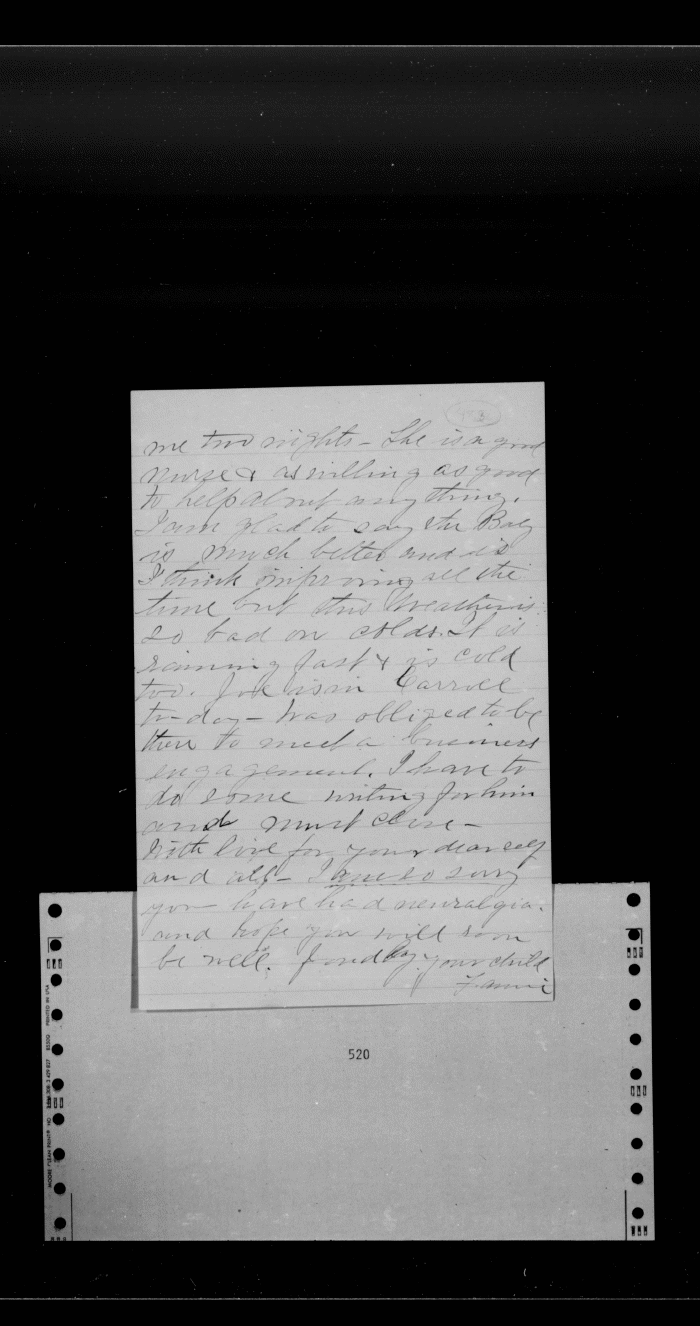 me two nights - She is a good
nurse & as willing as good
to help about any thing.
I am glad to say the Baby
is much better and is
I think improving all the
time but this Weather is
so bad on colds. It is
raining fast & is cold
too. Joe is in Carroll
to-day - was obliged to be
there to meet a business
engagement. I have to
do some writing for him
and must close -
With love for your dear self
and all - I am so sorry
you have had neuralgia.
and hope you will soon
be well. Fondly your child
Fannie
520
PRINTED IN USA